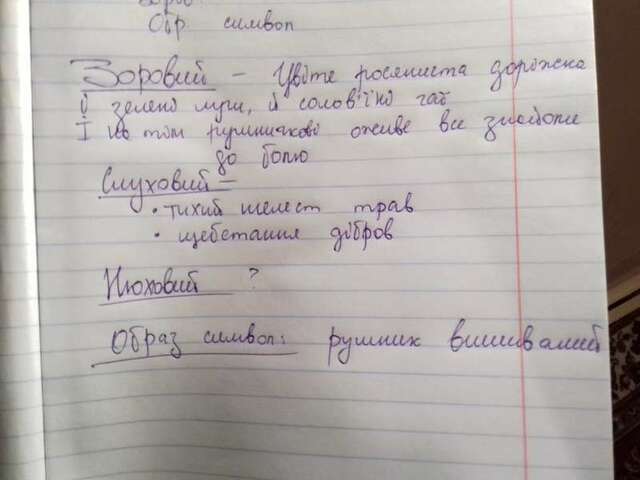 Обр символ
Зоровий – Цвіте росяниста доріжка
й зелені луги, й солов'їні гаї
І на тім рушникові оживе все знайоме
до болю
Слуховий –
• тихий шелест трав
• щебетання дібров
Нюховий ?
Образ символ: рушник вишиваний